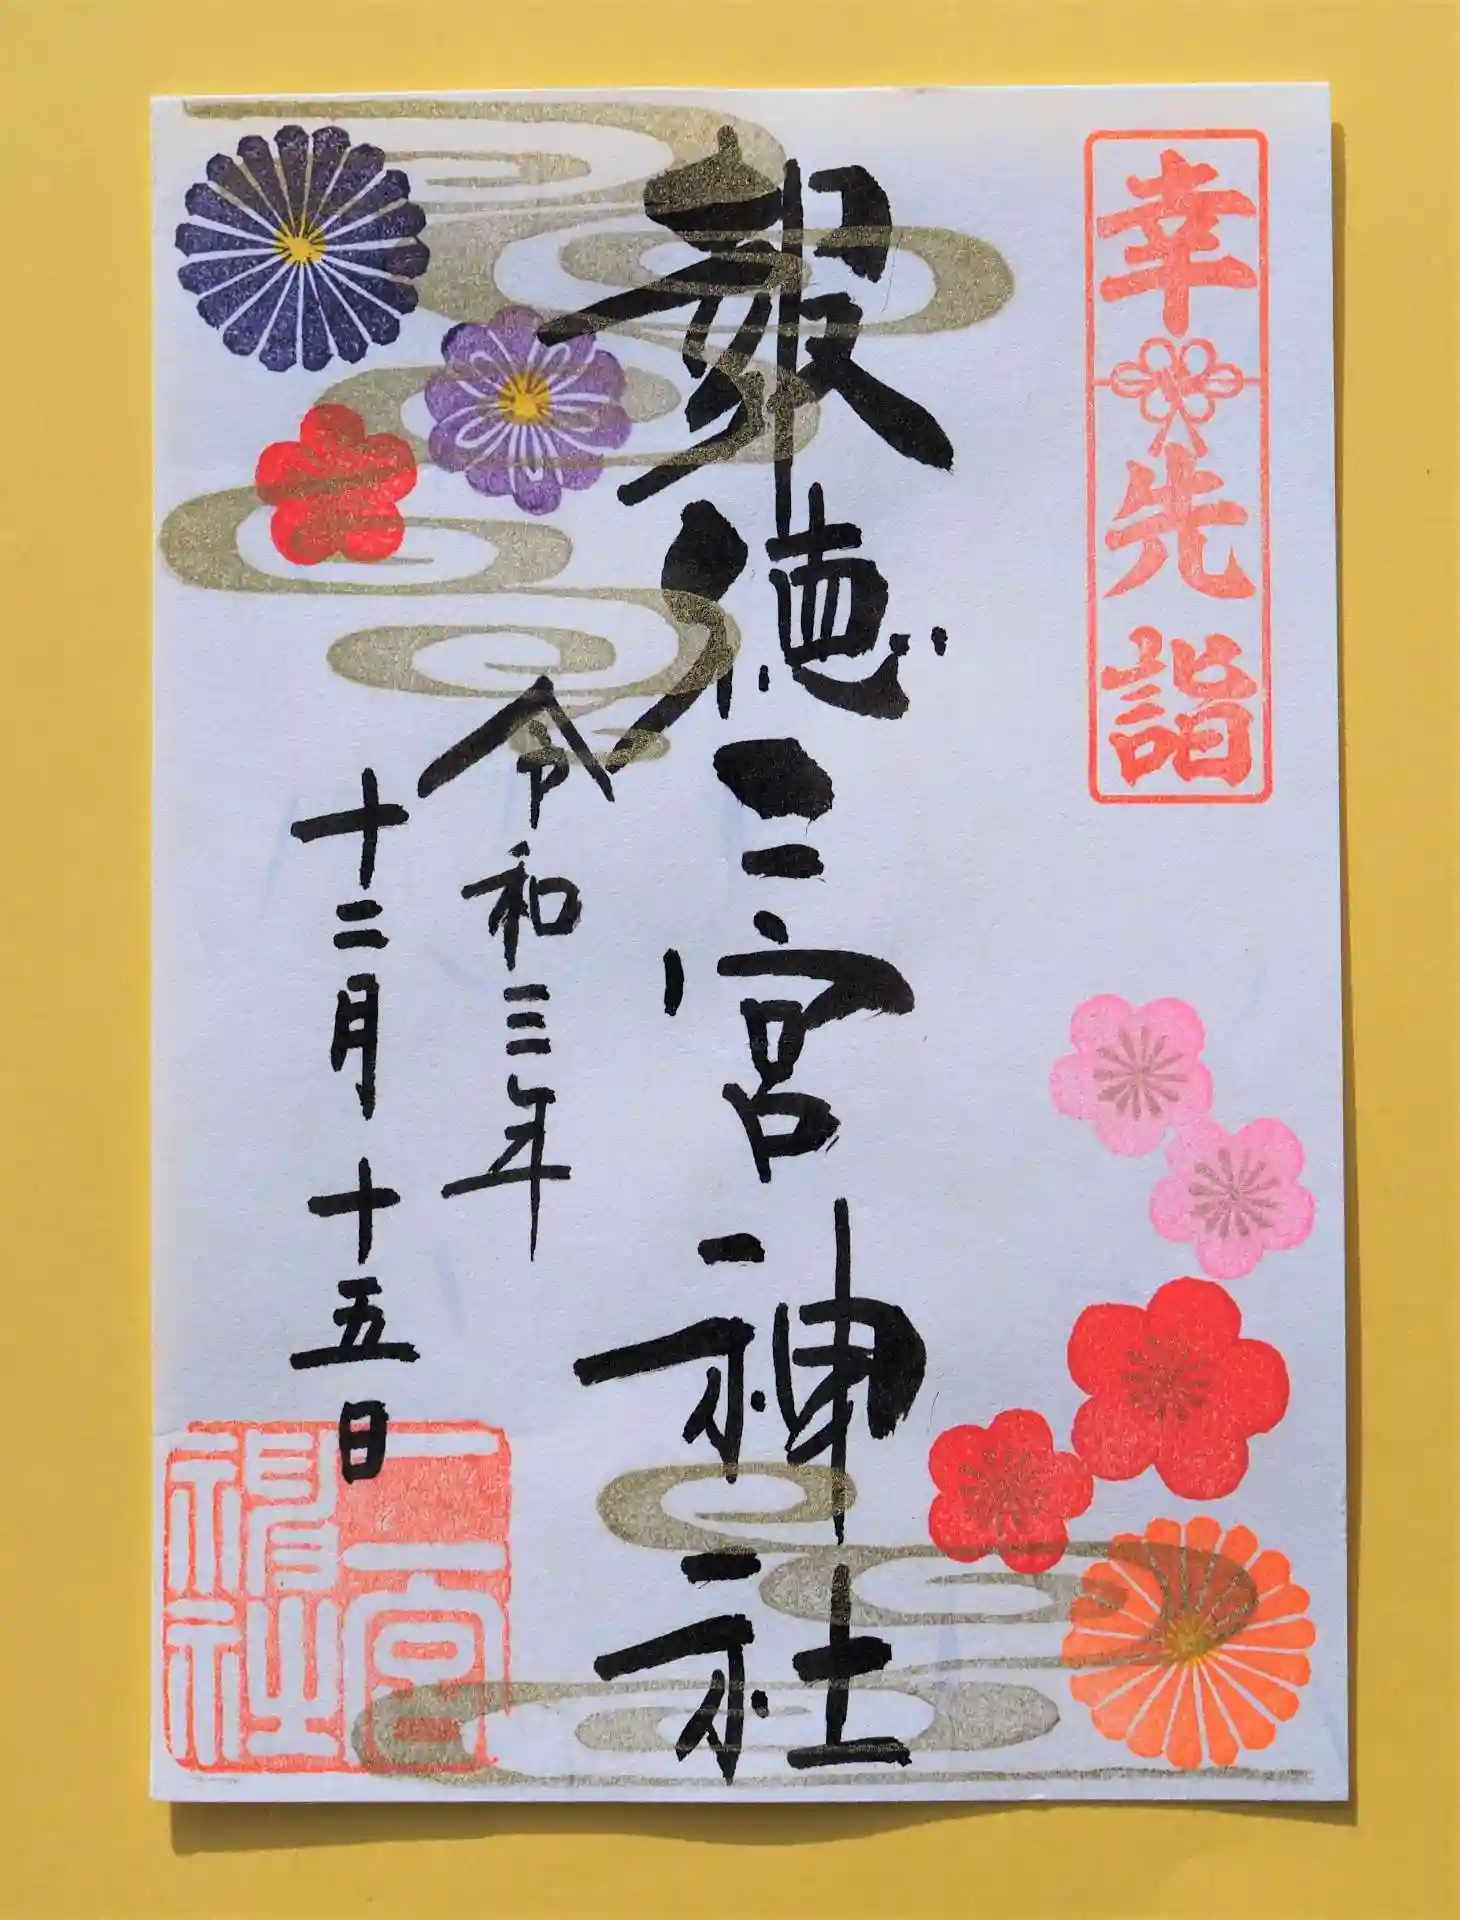 幸先詣
報徳二宮神社
令和三年
十二月十五日
二宮
神社